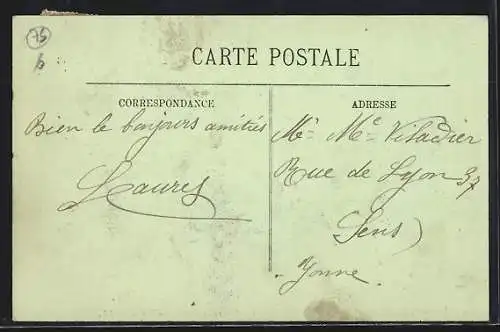 75
b
CARTE POSTALE
CORRESPONDANCE
ADRESSE
Bien le bonjours amitiés
Mr Me Viladier
Rue de Lyon 37
Sens
Yonne